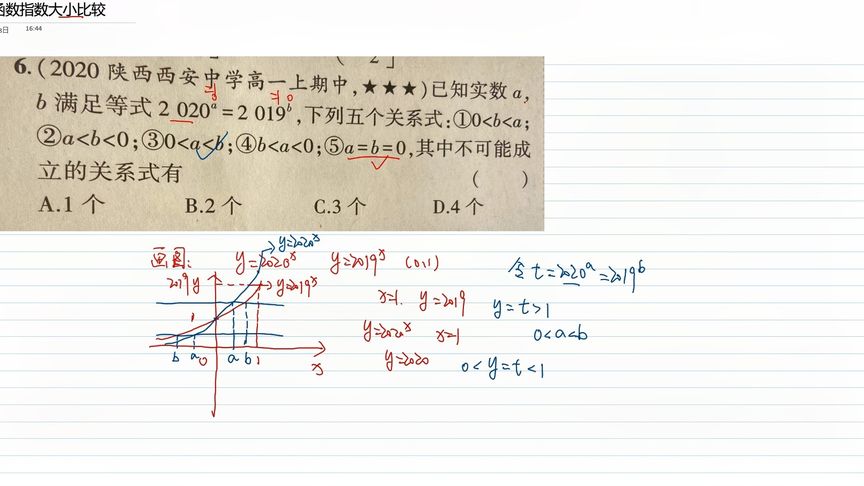 函数指数大小比较
16:44
6.(2020 陕西西安中学高一上期中,★★★)已知实数 a,
b 满足等式 2 020ᵃ=2 019ᵇ,下列五个关系式:①0<b<a;
②a<b<0;③0<a<b;④b<a<0;⑤a=b=0,其中不可能成
立的关系式有 ( )
A.1 个 B.2 个 C.3 个 D.4 个
画图: y=2020ˣ y=2019ˣ (0,1)
y=2020ˣ
2019 y
y=2019ˣ
1
b a 0 a b 1 x
x=1. y=2019
y=2020ˣ x=1
y=2020
令 t=2020ᵃ=2019ᵇ
y=t>1
0<a<b
0<y=t<1